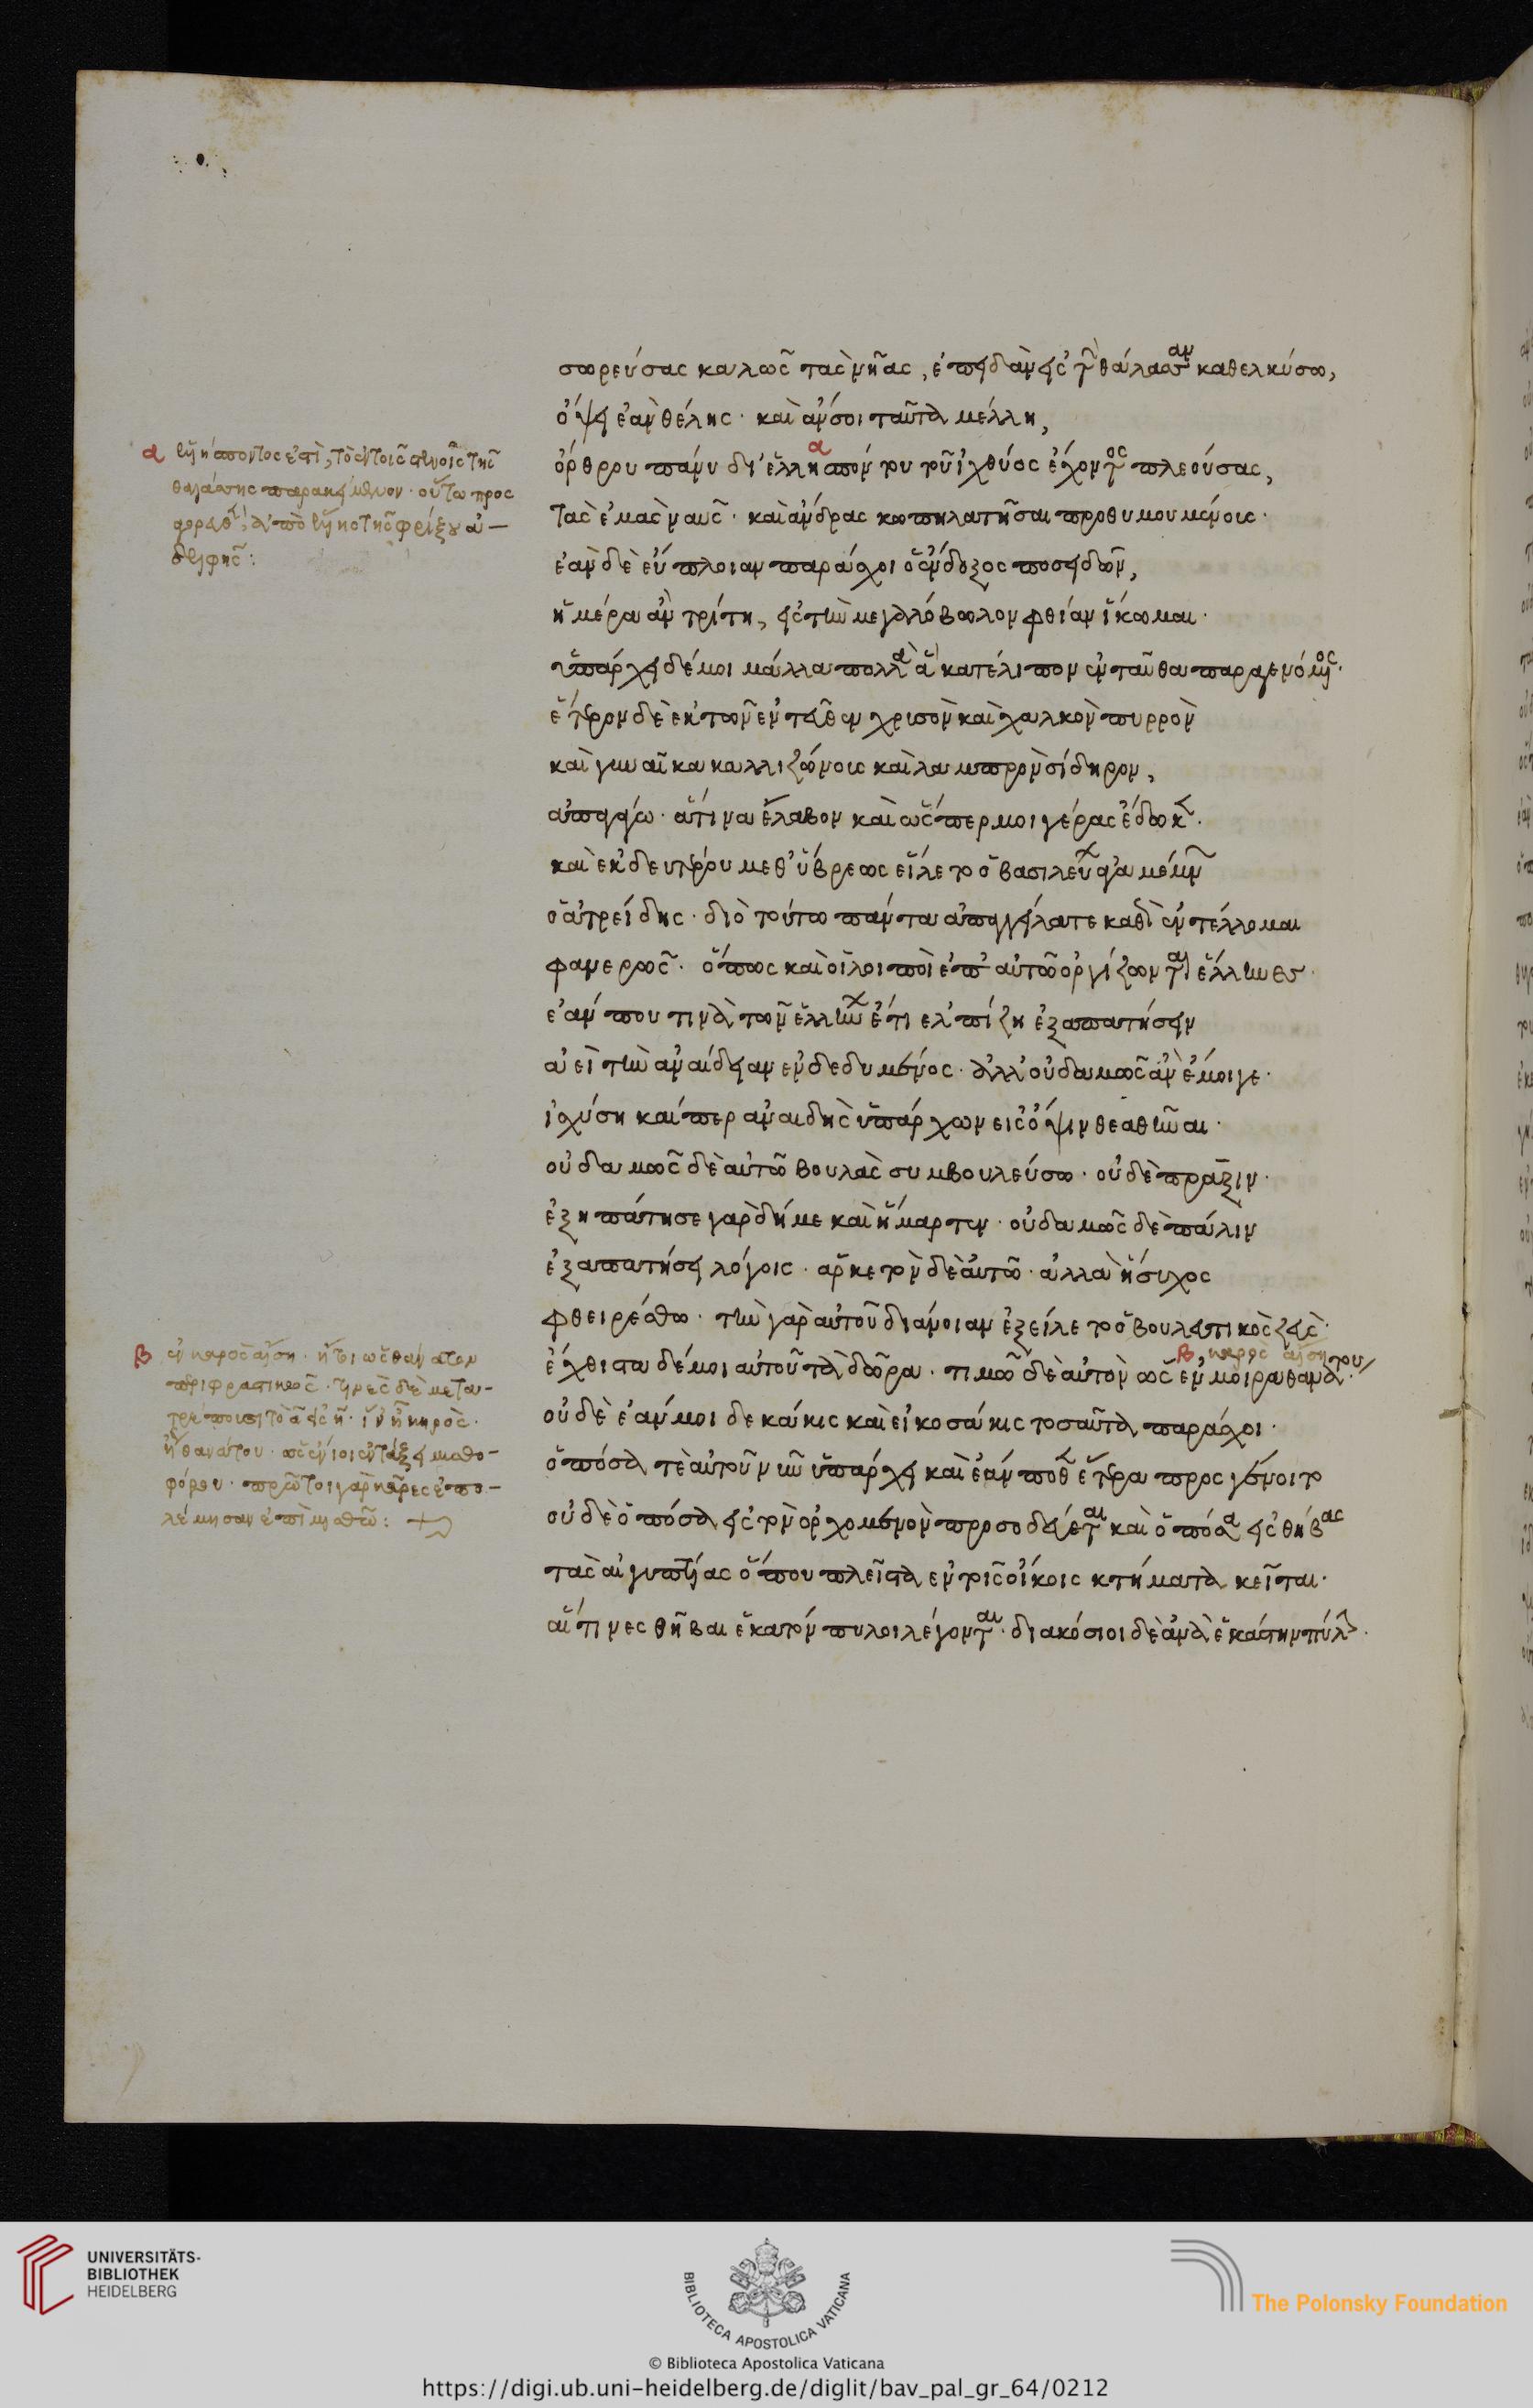 σωρεύσας καλῶς τὰς νῆας, ἐπειδὰν εἰς τὴν θάλασσαν καθελκύσω,
ὄψει ἐὰν θέλης· καὶ ἄν σοι ταῦτα μέλλη,
ὄρθρου πάνυ δι' ἑλλησπόντου τοῦ ἰχθύας ἔχοντος πλεούσας,
τὰς ἐμὰς ναῦς· καὶ ἄνδρας κωπηλατῆσαι προθυμουμένοις·
ἐὰν δὲ εὔπλοιαν παράσχοι ὁ ἔνδοξος ποσειδῶν,
ἡμέρα ἂν τρίτη, εἰς τὴν μεγαλόβωλον φθίαν ἵκωμαι·
ὑπάρχει δέ μοι μάλλα πολλὰ ἃ κατέλιπον ἐνταῦθα παραγενόμενος·
ἕτερον δὲ ἐκ τῶν ἐνταῦθεν χρισὸν καὶ χαλκὸν πυρρὸν
καὶ γυναῖκα καλλιζώνοις καὶ λαμπρὸν σίδηρον,
ἅτινα ἔλαβον καὶ ὥσπερ μοι γέρας ἔδωκεν·
καὶ ἐκ δευτέρου μεθ' ὕβρεως εἵλετο ὁ βασιλεὺς ἀγαμέμνων
ὁ ἀτρείδης· διὸ τούτω πάντα ἀπαγγείλατε καθὰ ἐντέλλομαι
φανερῶς· ὅπως καὶ οἱ λοιποὶ ἐπ' αὐτῶ ὀργίζωνται ἕλληνες·
ἐάν που τινὰ τῶν ἑλλήνων ἔτι ἐλπίζη ἐξαπατήσειν
ἀεὶ τὴν ἀναίδειαν ἐνδεδυμένος· ἀλλ' οὐδαμῶς ἂν ἔμοιγε·
ἰσχύση καίπερ ἀναιδὴς ὑπάρχων εἰς ὄψιν θεαθῆναι·
οὐδαμῶς δὲ αὐτῶ βουλὰς συμβουλεύσω· οὐδὲ πρᾶξιν·
ἐξηπάτησε γὰρ δή με καὶ ἥμαρτεν· οὐδαμῶς δὲ πάλιν
ἐξαπατήσει λόγοις· ἀρκετὸν δὲ αὐτῶ· ἀλλὰ ἥσυχος
φθειρέσθω· τὴν γὰρ αὐτοῦ διάνοιαν ἐξείλετο ὁ βουλευτικὸς ζεὺς
ἔχθιστα δέ μοι αὐτοῦ τὰ δῶρα· τιμῶ δὲ αὐτὸν ὡς ἐν μοίρα θανάτου·
β κηρὸς αἴση
οὐδὲ ἐάν μοι δεκάκις καὶ εἰκοσάκις τοσαῦτα παράσχοι·
ὁπόσα τὲ αὐτοῦ νῦν ὑπάρχει καὶ ἐάν ποθεν ἕτερα προσγένοιτο
οὐδὲ ὁπόσα εἰς τὸν ὀρχομενὸν προσοδεύεται καὶ ὁπόσα εἰς θήβας
τὰς αἰγυπτίας ὅπου πλεῖστα ἐν τοῖς οἴκοις κτήματα κεῖται·
αἵτινες θῆβαι ἑκατόνπυλοι λέγονται· διακόσιοι δὲ ἀνὰ ἑκάστην πύλην·
α ἑλλήσποντος ἐστὶ, τὸ ἐν τοῖς στενοῖς τῆς
θαλάσσης παρακείμενον· οὕτω προς
αγορευθὲν, ἀπὸ ἕλλης τῆς φρίξου ἀ-
δελφῆς:
β ἐν καρὸς αἴση· ἤτοι ὡς θανάτου
περιφραστικῶς· τινὲς δὲ μετα-
τρέπουσι τὸ α εἰς η· ἵν' ἦ κηρὸς·
ἢ θανάτου· ὡς ἔνιοι ἐν τάξει μισθο-
φόρου· πρῶτοι γὰρ κᾶρες ἐπο-
λέμησαν ἐπὶ μισθῶ:
UNIVERSITÄTS-
BIBLIOTHEK
HEIDELBERG
BIBLIOTECA APOSTOLICA VATICANA
© Biblioteca Apostolica Vaticana
The Polonsky Foundation
https://digi.ub.uni-heidelberg.de/diglit/bav_pal_gr_64/0212